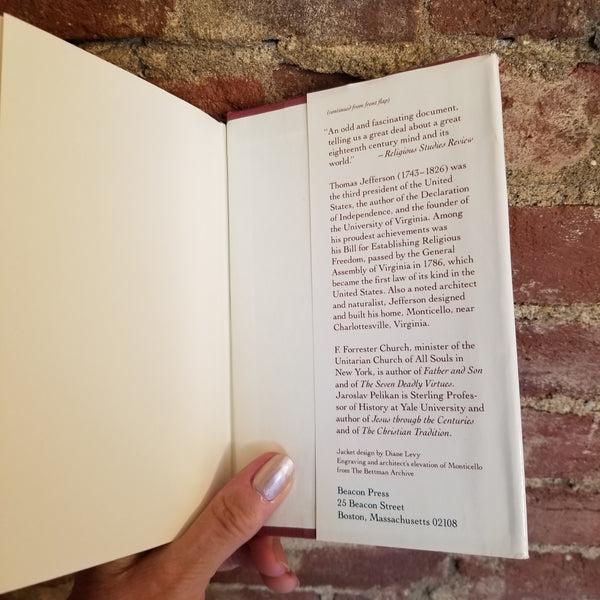 (continued from front flap)
"An odd and fascinating document,
telling us a great deal about a great
eighteenth century mind and its
world."
—Religious Studies Review
Thomas Jefferson (1743–1826) was
the third president of the United
States, the author of the Declaration
of Independence, and the founder of
the University of Virginia. Among
his proudest achievements was
his Bill for Establishing Religious
Freedom, passed by the General
Assembly of Virginia in 1786, which
became the first law of its kind in the
United States. Also a noted architect
and naturalist, Jefferson designed
and built his home, Monticello, near
Charlottesville, Virginia.
F. Forrester Church, minister of the
Unitarian Church of All Souls in
New York, is author of Father and Son
and of The Seven Deadly Virtues.
Jaroslav Pelikan is Sterling Profes-
sor of History at Yale University and
author of Jesus through the Centuries
and of The Christian Tradition.
Jacket design by Diane Levy
Engraving and architect's elevation of Monticello
from The Bettman Archive
Beacon Press
25 Beacon Street
Boston, Massachusetts 02108